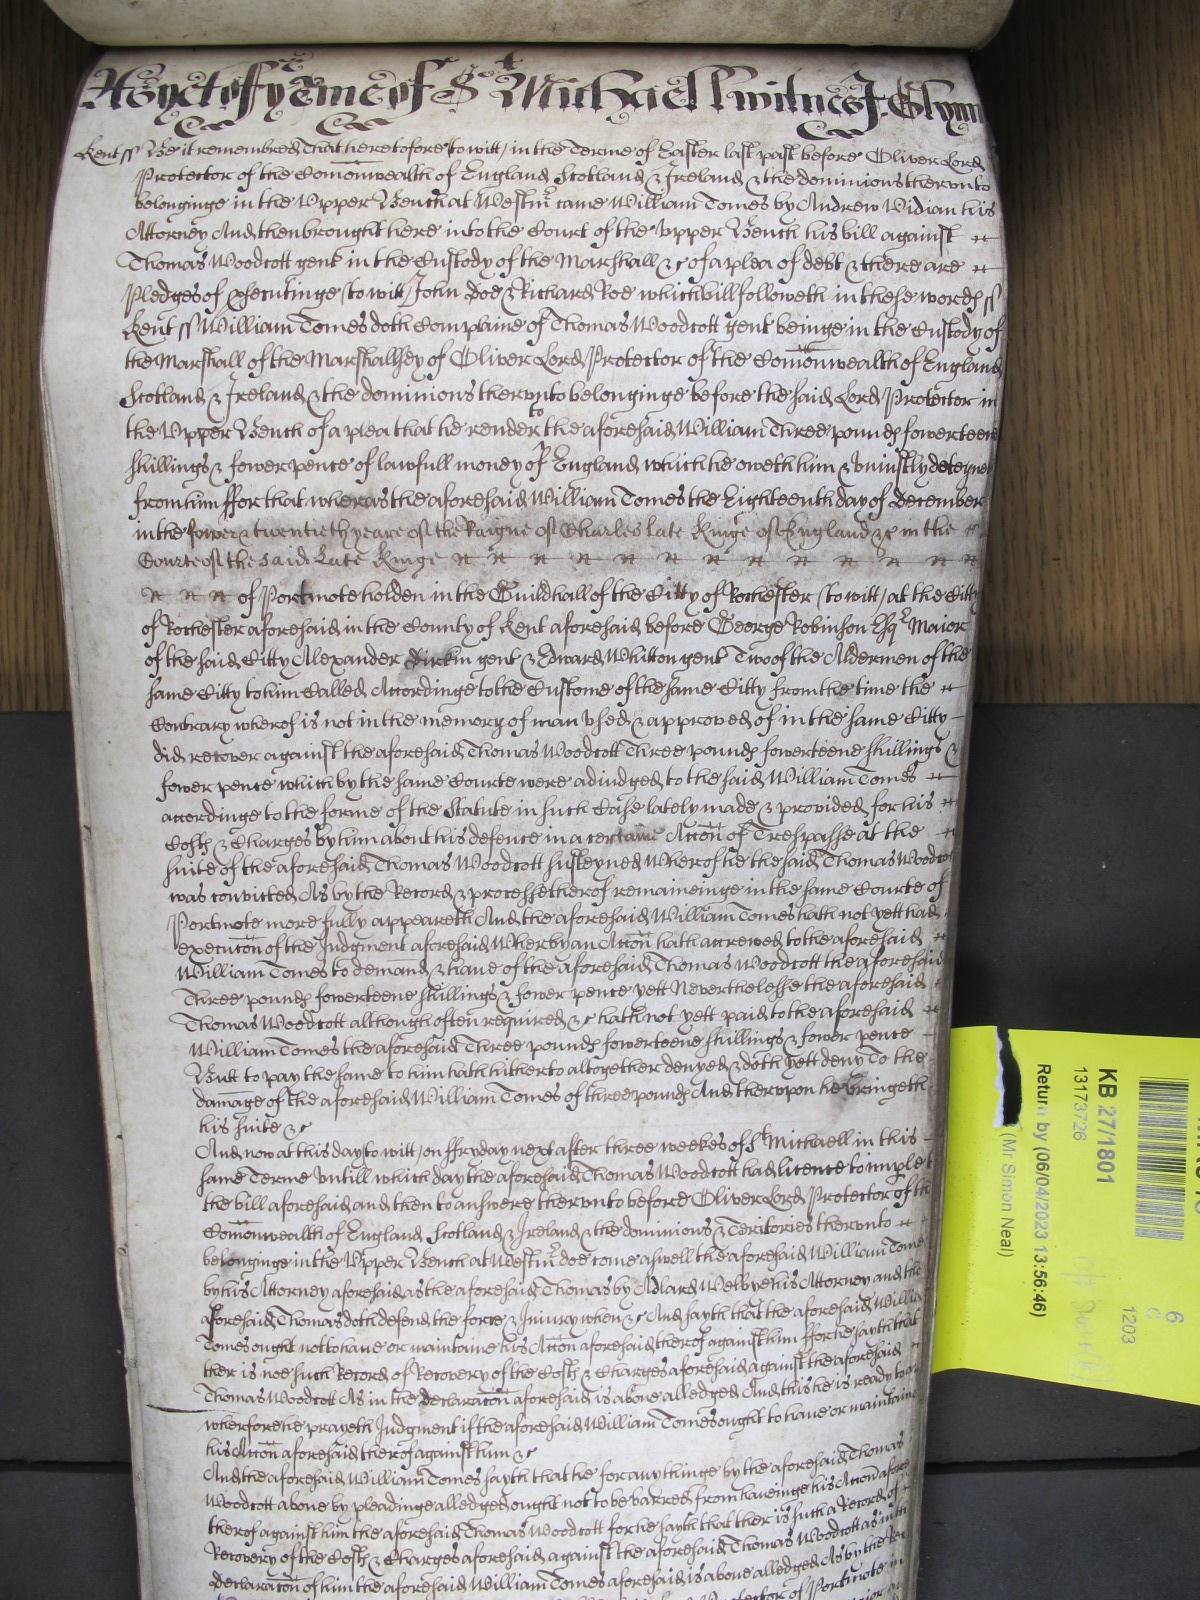 Yet of ye terme of St Michaell witnes J. Glynn
Kent ss Be it remembred That heretofore (to witt) in the Terme of Easter last past before Oliver Lord
Protector of the Comonwealth of England Scotland & Ireland & the dominions therunto
belonginge in the Upper Bench at Westmr came William Tomes by Andrew Vidian his
Attorney And then brought here into the Court of the Upper Bench his bill against
Thomas Woodcott gent in the Custody of the Marshall &c of a plea of debt & there are
Pledges of prosecutinge (to witt) John Doe & Richard Roe which bill followeth in these words ss
Kent ss William Tomes doth Complaine of Thomas Woodcott gent beinge in the Custody of
the Marshall of the Marshalsey of Oliver Lord Protector of the Comonwealth of England
Scotland & Ireland & the dominions therunto belonginge before the said Lord Protector in
the Upper Bench of a plea that he render to the aforesaid William Three pounds fowerteen
shillings & fower pence of lawfull money of England which he oweth him & uniustly deteynes
from him ffor that wheras the aforesaid William Tomes the Eighteenth day of December
in the fower & twentieth yeare of the Raigne of Charles late Kinge of England &c in the
Courte of the said late Kinge
of Portmote holden in the Guildhall of the Citty of Rochester (to witt) at the Citty
of Rochester aforesaid in the County of Kent aforesaid before George Robinson Esqr Maior
of the said Citty Alexander Dirkin gent & Edward Whitton gent Two of the Aldermen of the
same Citty to him Called Accordinge to the Custome of the same Citty from the time the
Contrary wherof is not in the memory of man used & approved of in the same Citty
did recover against the aforesaid Thomas Woodcott Three pounds fowerteene shillings &
fower pence which by the same Courte were adiudged to the said William Tomes
accordinge to the forme of the Statute in such Case lately made & provided for his
Costs & Charges by him about his defence in a certaine Accon of Trespasse at the
suite of the aforesaid Thomas Woodcott susteyned Wherof he the said Thomas Woodcott
was convicted As by the Record & processe therof remaineinge in the same Courte of
Portmote more fully appeareth And the aforesaid William Tomes hath not yett had
execucon of the Judgment aforesaid Wherby an Accon hath accrewed to the aforesaid
William Tomes to demand & have of the aforesaid Thomas Woodcott the aforesaid
Three pounds fowerteene shillings & fower pence yett Neverthelesse the aforesaid
Thomas Woodcott although often required &c hath not yett paid to the aforesaid
William Tomes the aforesaid Three pounds fowerteene shillings & fower pence
Butt to pay the same to him hath hitherto altogether denyed & doth yett deny To the
damage of the aforesaid William Tomes of three pounds And therupon he bringeth
his suite &c
And now at this day (to witt) on ffryday next after three weekes of St Michaell in this
same Terme Untill which day the aforesaid Thomas Woodcott had licence to implet
the bill aforesaid and then to answere therunto before Oliver Lord Protector of the
Comonwealth of England Scotland & Ireland & the dominions & Territories therunto
belonginge in the Upper Bench at Westmr doe come aswell the aforesaid William Tomes
by his Attorney aforesaid as the aforesaid Thomas by Adlard Welbye his Attorney and the
aforesaid Thomas doth defend the force & Iniury when &c And sayth that the aforesaid William
Tomes ought not to have or maintaine his Accon aforesaid therof against him ffor he sayth that
ther is noe such Record of Recovery of the Costs & Charges aforesaid against the aforesaid
Thomas Woodcott As in the declaracon aforesaid is above alledged And this he is ready to
wherfore he prayeth Judgment if the aforesaid William Tomes ought to have or maintaine
his Accon aforesaid therof against him &c
And the aforesaid William Tomes sayth that he for any thinge by the aforesaid Thomas
Woodcott above by pleadinge alledged ought not to be barred from haveinge his Accon aforesaid
therof against him the aforesaid Thomas Woodcott for he sayth that ther is such a Record of
Recovery of the Costs & Charges aforesaid against the aforesaid Thomas Woodcott as in the
declaracon of him the aforesaid William Tomes aforesaid is above alledged As by the
Protector of Portmote in
KB 27/1801
13173726
Return by (06/04/2023 13:56:46)
(Mr Simon Neal)
6
C
1203